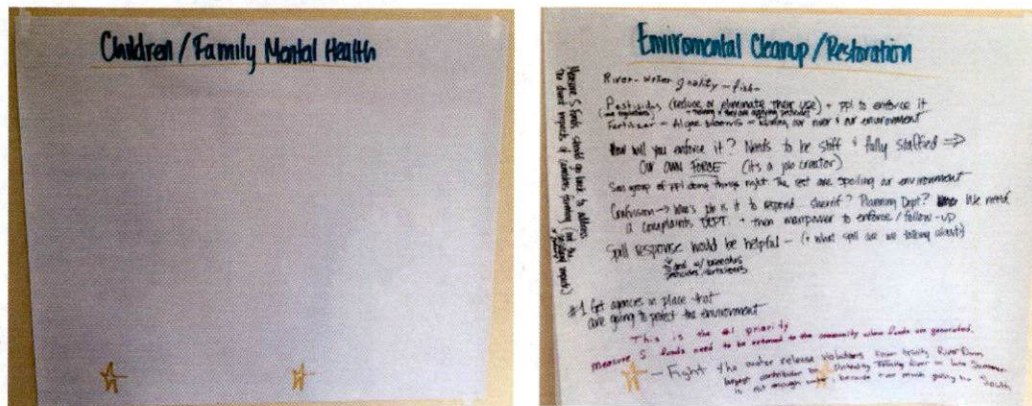 Children/Family Mental Health
Enviromental Cleanup/Restoration
River-water quality - fish-
Pesticides (reduce or eliminate their use) + ppl to enforce it
Fertilizer - Algae blooms - killing our river & our environment
How will you enforce it? Needs to be stiff & fully staffed ⇒
OUR OWN FORCE (its a job creator)
group of ppl doing things right The rest are spoiling our environment
Confusion → Who's job is it to respond sheriff? Planning Dept? We need
a complaints DEPT. + then manpower to enforce/follow-up
Spill response would be helpful - (+ what spill are we talking about)
#1 Get agencies in place that
are going to protect the environment
This is the #1 priority
measure S funds need to be returned to the community when funds are generated.
- Fight the water release violations from Trinity River Dam
largest contributor to Trinity River in late Summer
is not enough because too much going to South
Measure S funds should go back to address
the direct impacts of